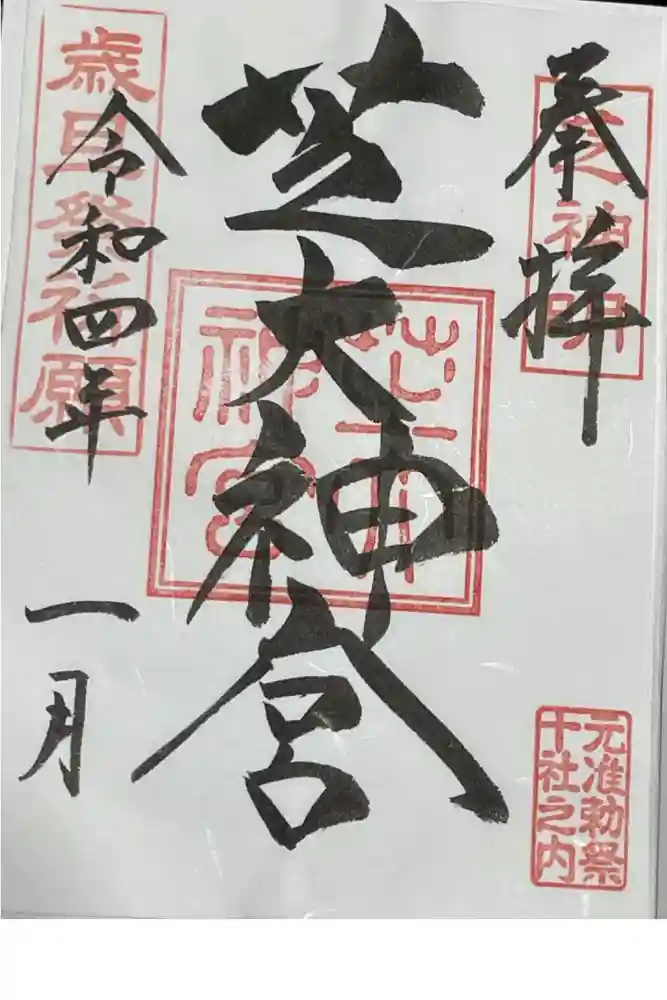 奉拝
芝神明
芝大神宮
芝大神宮
歳旦発福願
令和四年
一月
元准勅祭
十社之内